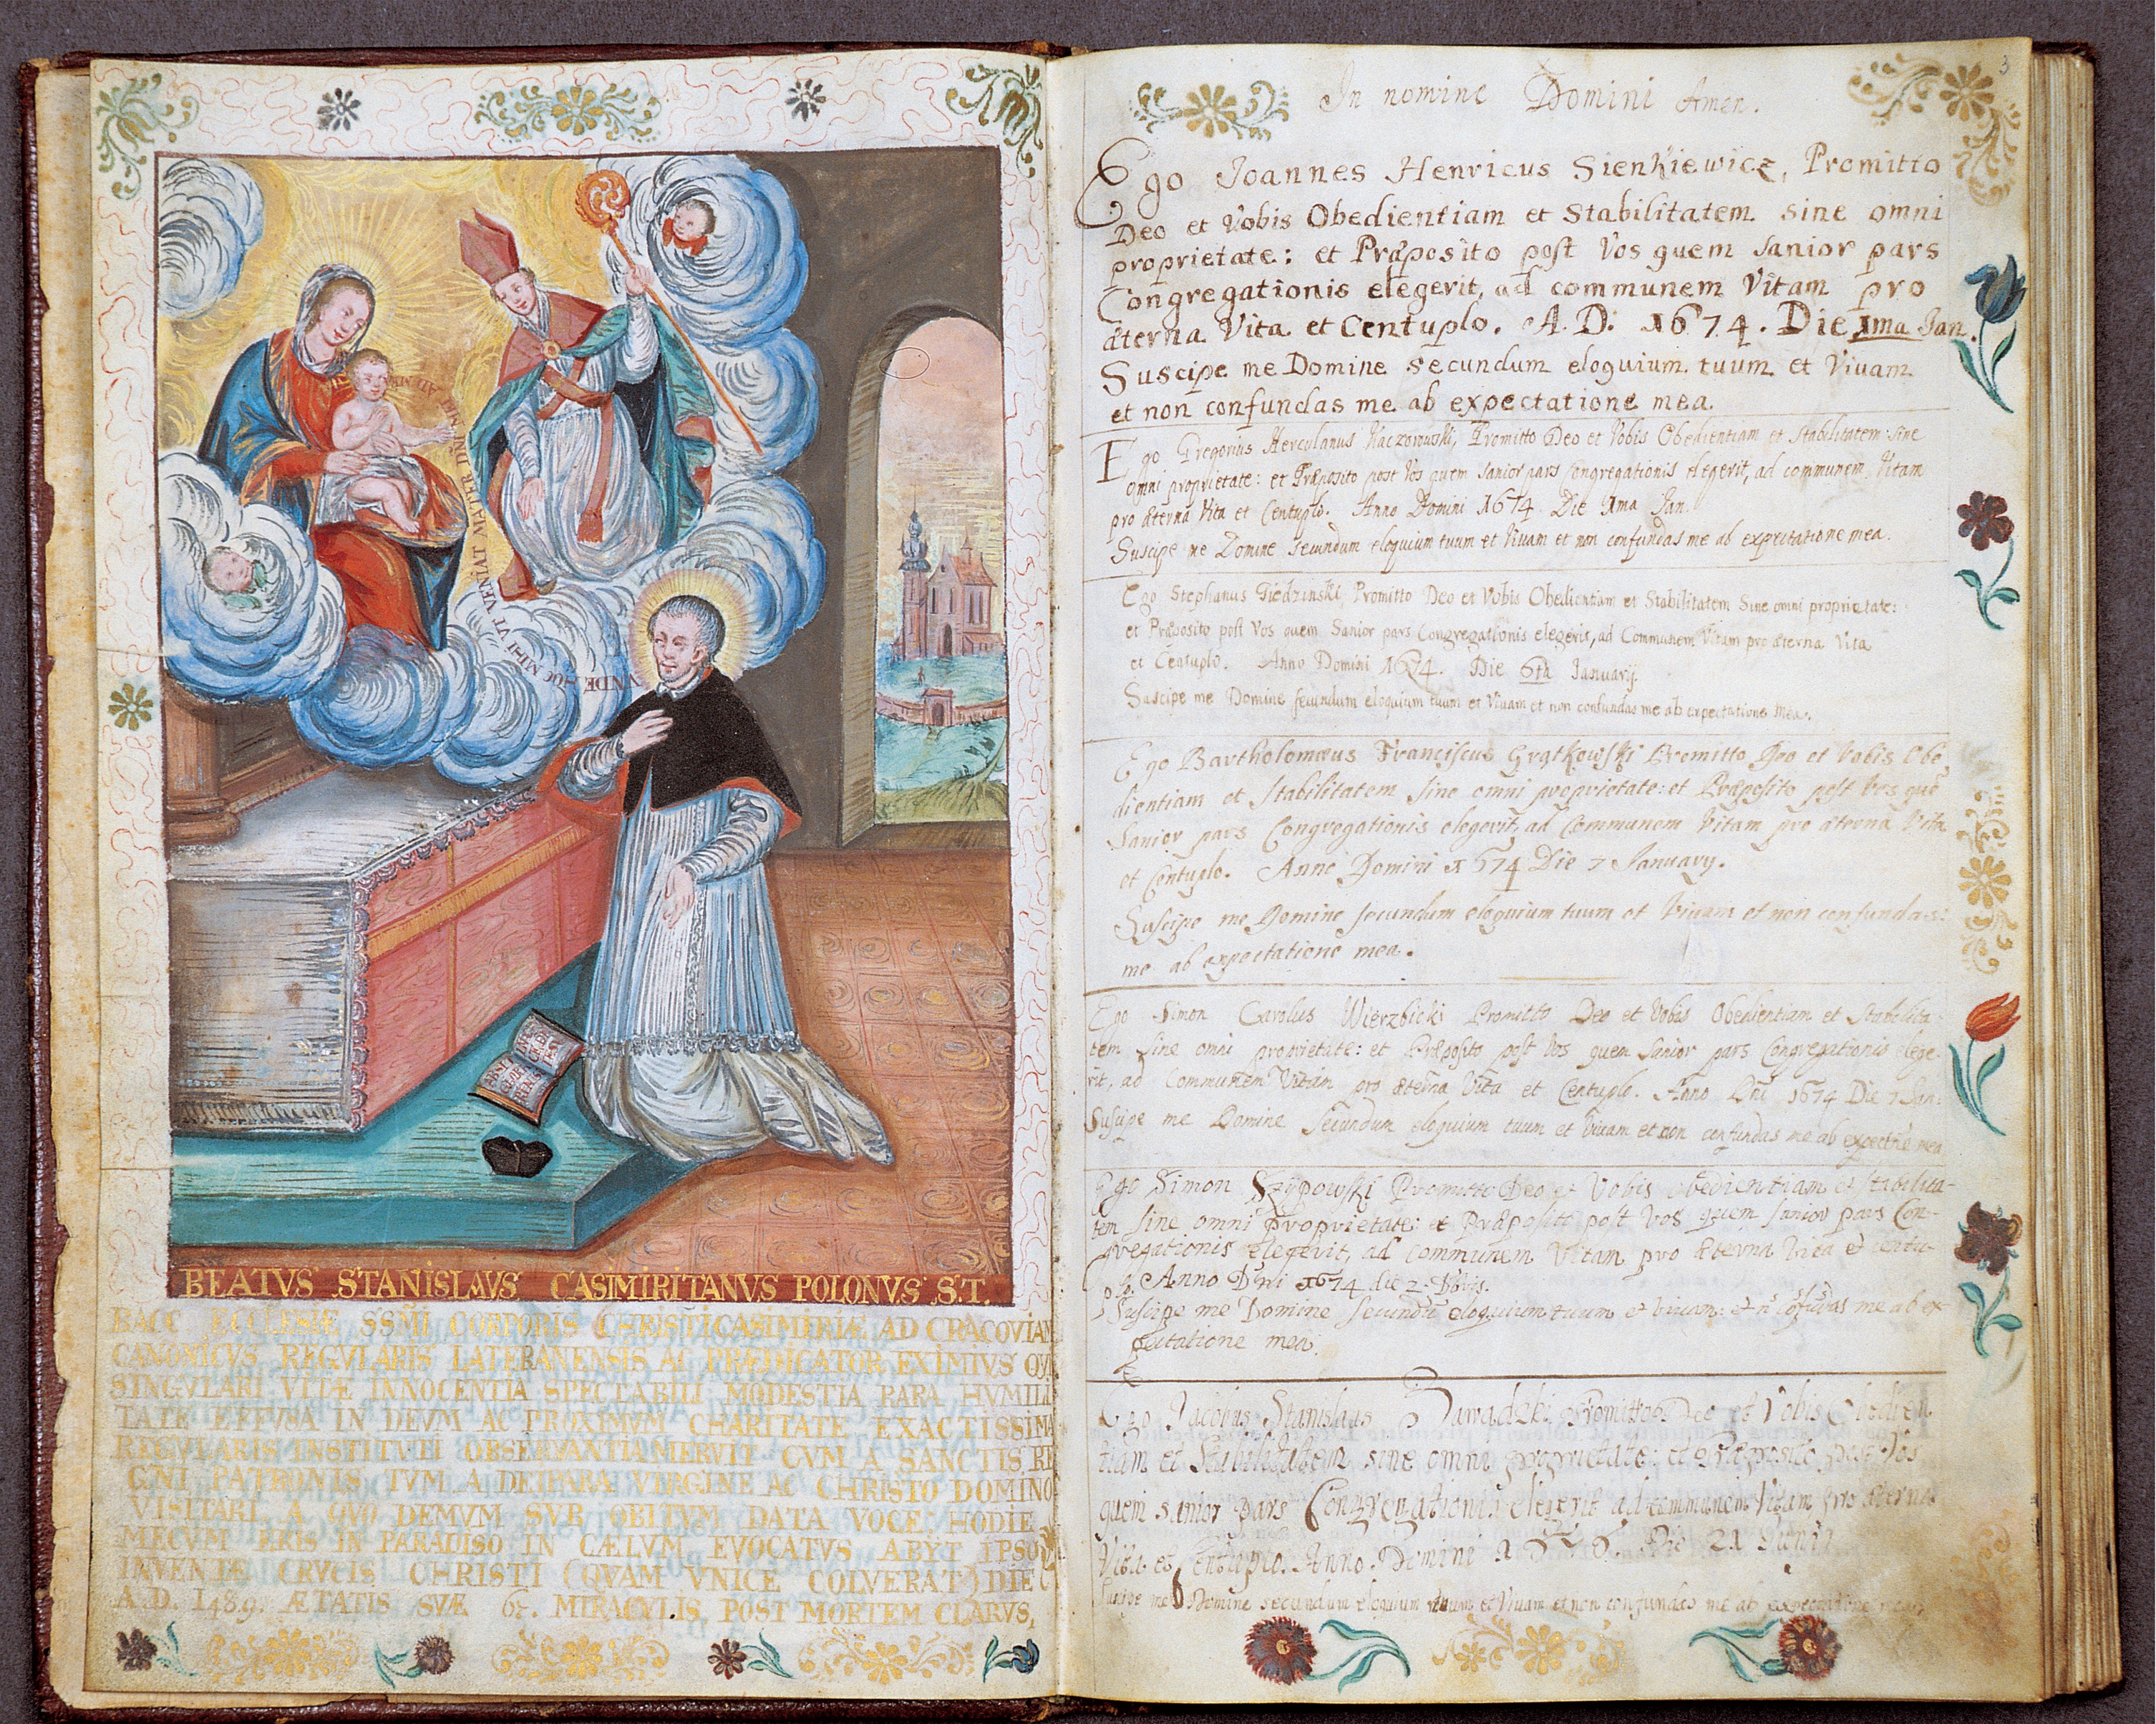 AD ME
UNDE HOC MIHI UT VENIAT MATER DNI MEI
BEATVS STANISLAVS CASIMIRITANVS POLONVS S.T.
BACC ECCLESIÆ SSMI CORPORIS CHRISTI CASIMIRIÆ AD CRACOVIAM
CANONICVS REGVLARIS LATERANENSIS AC PRÆDICATOR EXIMIVS QVI
SINGVLARI VITÆ INNOCENTIA SPECTABILI MODESTIA RARA HVMILI
TATE EFFVSA IN DEVM AC PROXIMVM CHARITATE EXACTISSIMA
REGVLARIS INSTITVTI OBSERVANTIA MERVIT CVM A SANCTIS RE
GNI PATRONIS TVM A DEIPARA VIRGINE AC CHRISTO DOMINO
VISITARI A QVO DEMVM SVB OBITVM DATA VOCE: HODIE
MECVM ERIS IN PARADISO IN CÆLVM EVOCATVS ABYT IPSO
INVENTÆ CRVCIS CHRISTI (QVAM VNICE COLVERAT) DIE
A.D. 1489. ÆTATIS SVÆ 67. MIRACVLIS POST MORTEM CLARVS,
3
In nomine Domini Amen.
Ego Joannes Henricus Sienkiewicz, Promitto
Deo et Vobis Obedientiam et Stabilitatem sine omni
proprietate: et Præposito post Vos quem Sanior pars
Congregationis elegerit, ad communem Vitam pro
æterna Vita et Centuplo. A.D. 1674. Die 1ma Jan.
Suscipe me Domine secundum eloquium tuum et Vivam
et non confundas me ab expectatione mea.
Ego Gregorius Herculanus Kaczorowski, Promitto Deo et Vobis Obedientiam et Stabilitatem sine
omni proprietate: et Præposito post Vos quem Sanior pars Congregationis elegerit, ad communem Vitam
pro æterna Vita et Centuplo. Anno Domini 1674 Die 1ma Jan.
Suscipe me Domine secundum eloquium tuum et Vivam et non confundas me ab expectatione mea.
Ego Stephanus Promitto Deo et Vobis Obedientiam et Stabilitatem Sine omni proprietate:
et Præposito post Vos quem Sanior pars Congregationis elegerit, ad Communem Vitam pro æterna Vita
et Centuplo. Anno Domini 1674. Die 6ta Januarij.
Suscipe me Domine secundum eloquium tuum et Vivam et non confundas me ab expectatione mea.
Ego Bartholomæus Franciscus Promitto Deo et Vobis Obe
dientiam et Stabilitatem sine omni proprietate: et Præposito post Vos quē
Sanior pars Congregationis elegerit, ad Communem Vitam pro æterna Vita
et Centuplo. Anno Domini 1674 Die 7 January.
Suscipe me Domine secundum eloquium tuum et Vivam et non confundas:
me ab expectatione mea.
Ego Simon Carolus Wierzbicki Promitto Deo et Vobis Obedientiam et Stabilita
tem sine omni proprietate: et Præposito post Vos quem Sanior pars Congregationis elege
rit, ad Communem Vitam pro æterna Vita et Centuplo. Anno Dni 1674 Die 7 Jan:
Suscipe me Domine Secundum eloquium tuum et Vivam et non confundas me ab expectne mea
Ego Simon Promitto Deo et Vobis obedientiam et Stabilita-
tem sine omni proprietate: et Præposito post Vos quem Sanior pars Con-
gregationis elegerit, ad Communem Vitam pro Æterna Vita et centu-
plo. Anno Dni 1674 die 2
Suscipe me Domine secundū eloquium tuum et vivam: et n confūdas me ab ex-
pectatione mea.
Ego Jacobus Stanislaus Promitto Deo et Vobis Obedien
tiam et Stabilitatem sine omni proprietate: et Præposito post Vos
quem sanior pars Congregationis elegerit ad communem Vitam pro æterna
Vita et Centuplo. Anno Domini Die 21 Junii
Suscipe me Domine secundum eloquium tuum et Vivam et non confundas me ab expectatione mea